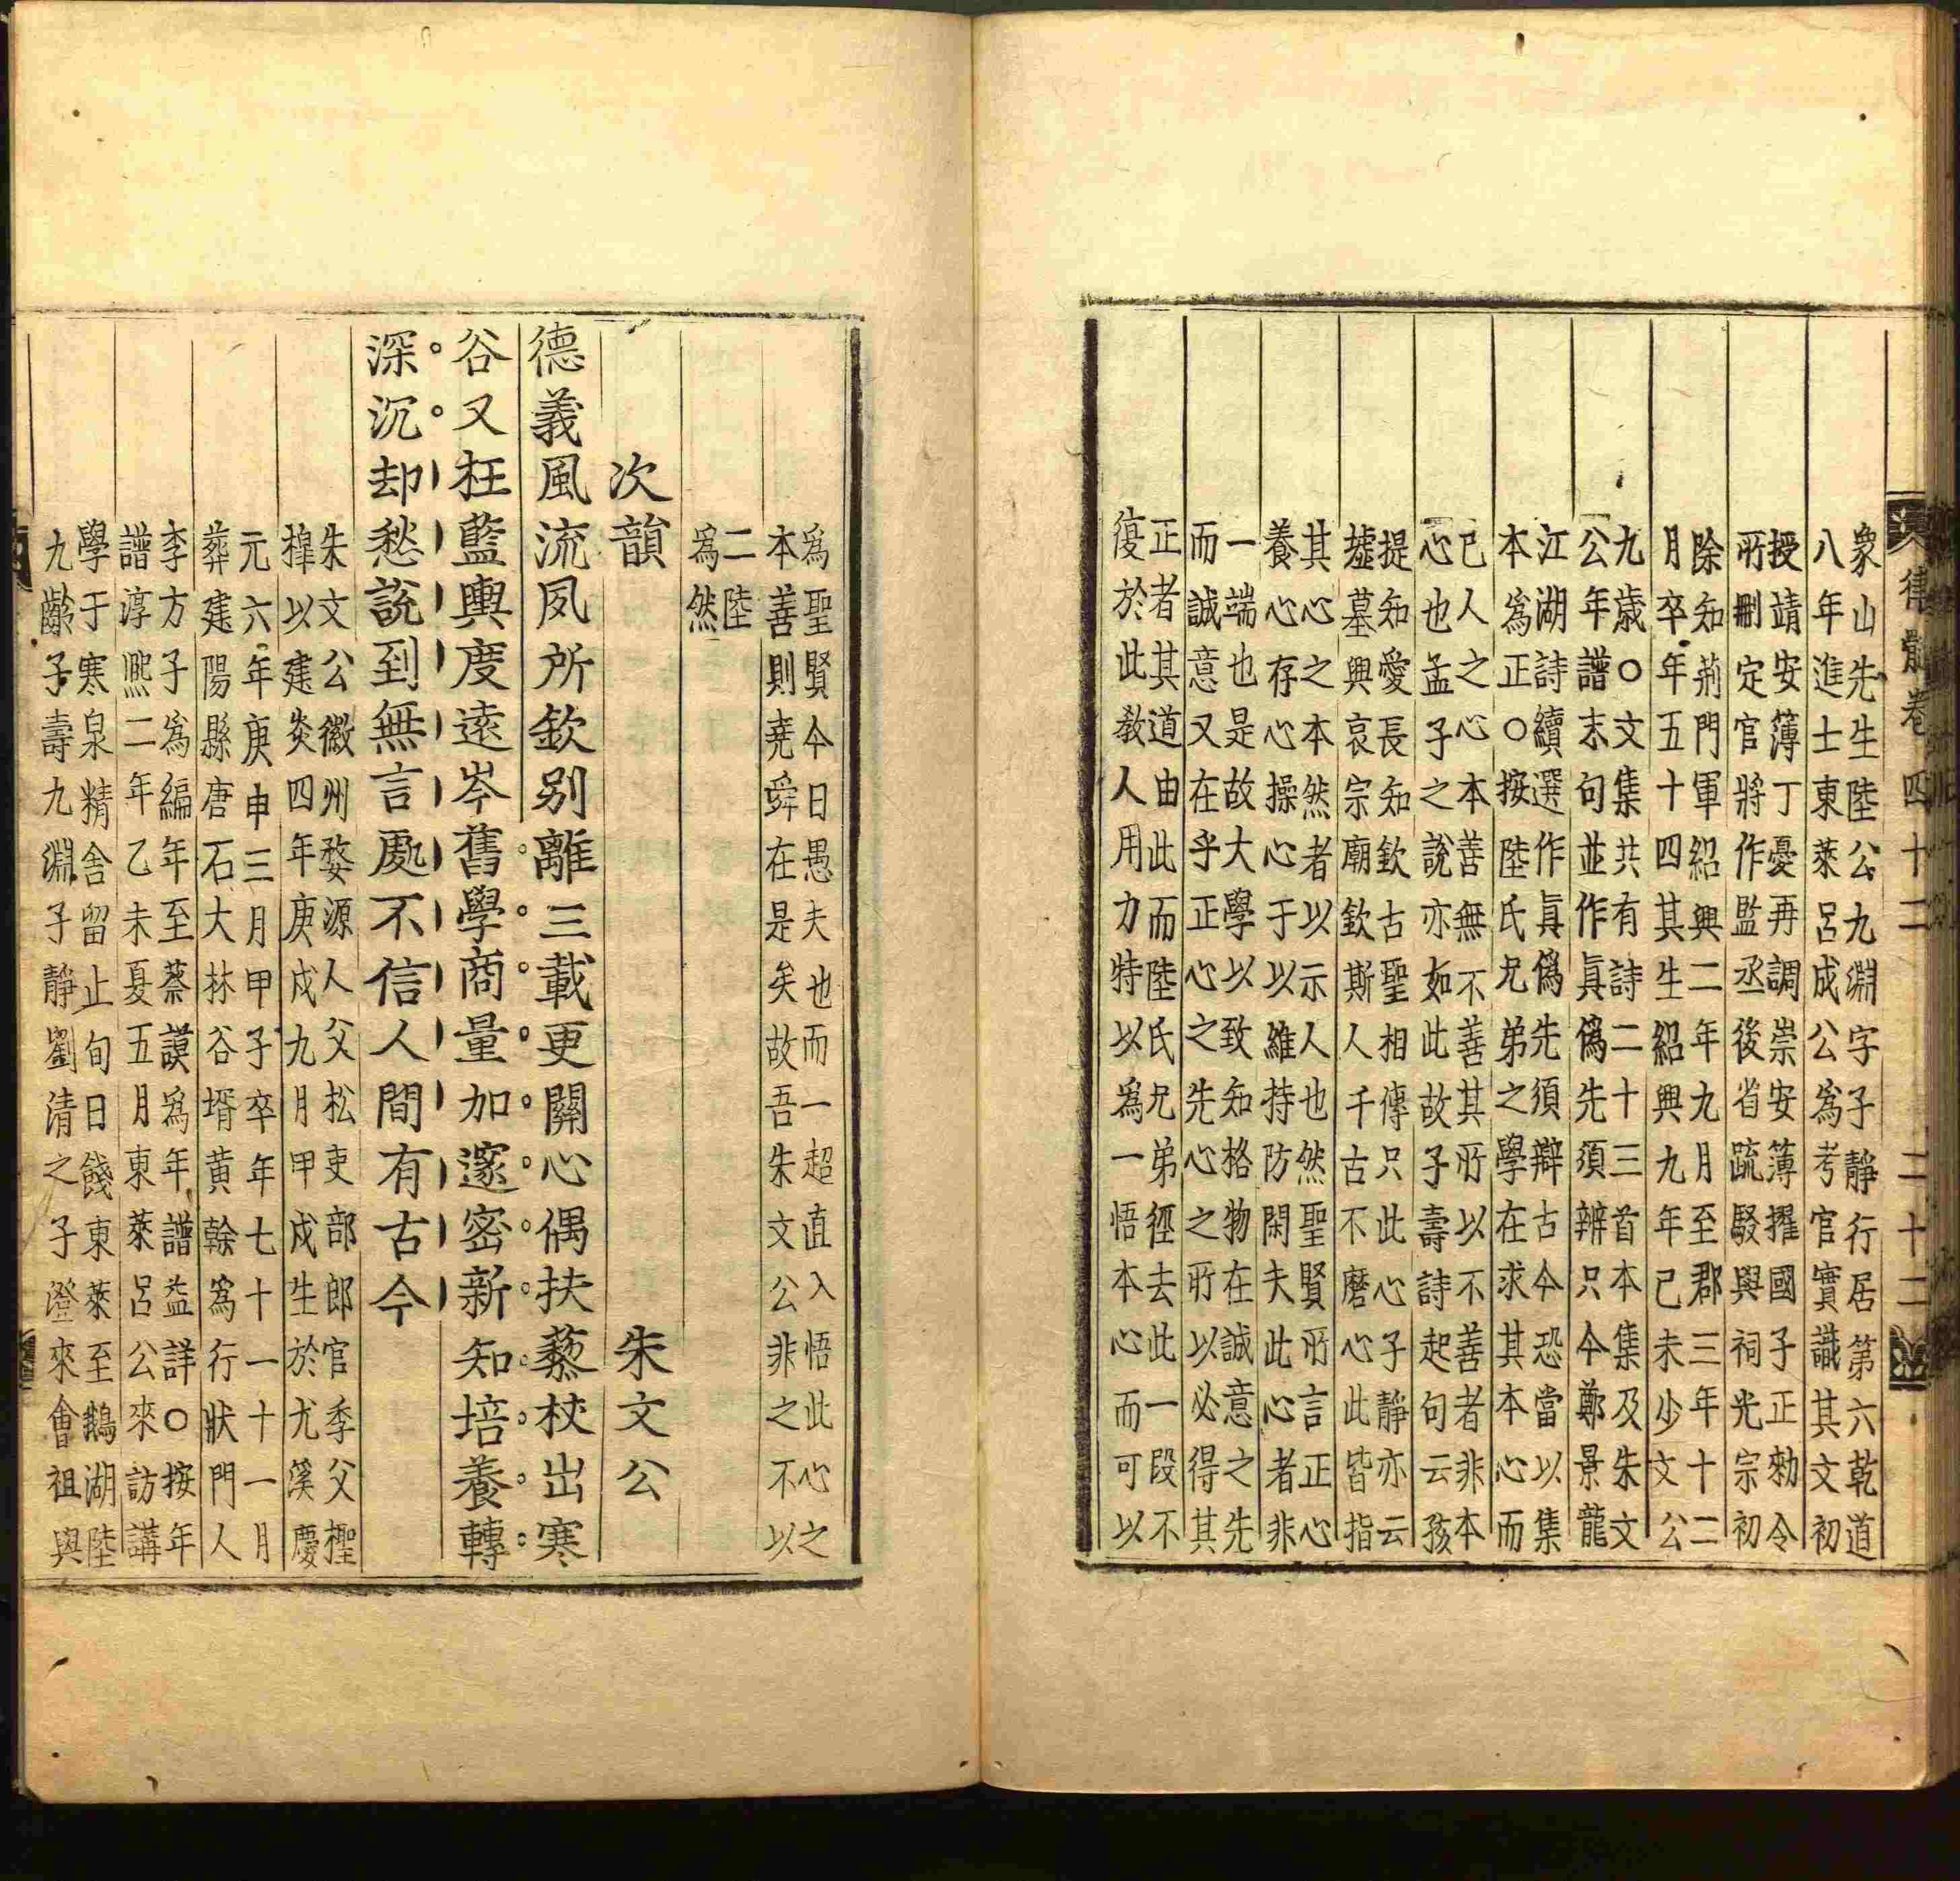 律髓卷四十二 二十二
象山先生陸公九淵字子靜行居第六乾道
八年進士東萊呂成公為考官實識其文初
授靖安簿丁憂再調崇安簿擢國子正勑令
所刪定官將作監丞後省疏駁與祠光宗初
除知荊門軍紹興二年九月至郡三年十二
月卒年五十四其生紹興九年己未少文公
九歲○文集共有詩二十三首本集及朱文
公年譜末句並作真偽先須辨只今鄭景龍
江湖詩續選作真偽先須辯古今恐當以集
本為正○按陸氏兄弟之學在求其本心而
已人之心本善無不善其所以不善者非本
心也孟子之說亦如此故子壽詩起句云孩
提知愛長知欽古聖相傳只此心子靜亦云
墟墓興哀宗廟欽斯人千古不磨心此皆指
其心之本然者以示人也然聖賢所言正心
養心存心操心于以維持防閑夫此心者非
一端也是故大學以致知格物在誠意之先
而誠意又在乎正心之先心之所以必得其
正者其道由此而陸氏兄弟徑去此一段不
復於此教人用力特以為一悟本心而可以
為聖賢今日愚夫也而一超直入悟此心之
本善則堯舜在是矣故吾朱文公非之不以
二陸
為然
次韻 朱文公
德義風流夙所欽別離三載更關心偶扶藜杖出寒
谷又枉藍輿度遠岑舊學商量加邃密新知培養轉
深沉却愁說到無言處不信人間有古今
朱文公徽州婺源人父松吏部郎官季父檉
㨓以建炎四年庚戌九月甲戌生於尤溪慶
元六年庚申三月甲子卒年七十一十一月
葬建陽縣唐石大林谷壻黃榦為行狀門人
李方子為編年至蔡謨為年譜益詳○按年
譜淳熈二年乙未夏五月東萊呂公來訪講
學于寒泉精舍留止旬日餞東萊至鵝湖陸
九齡子壽九淵子靜劉清之子澄來會祖與